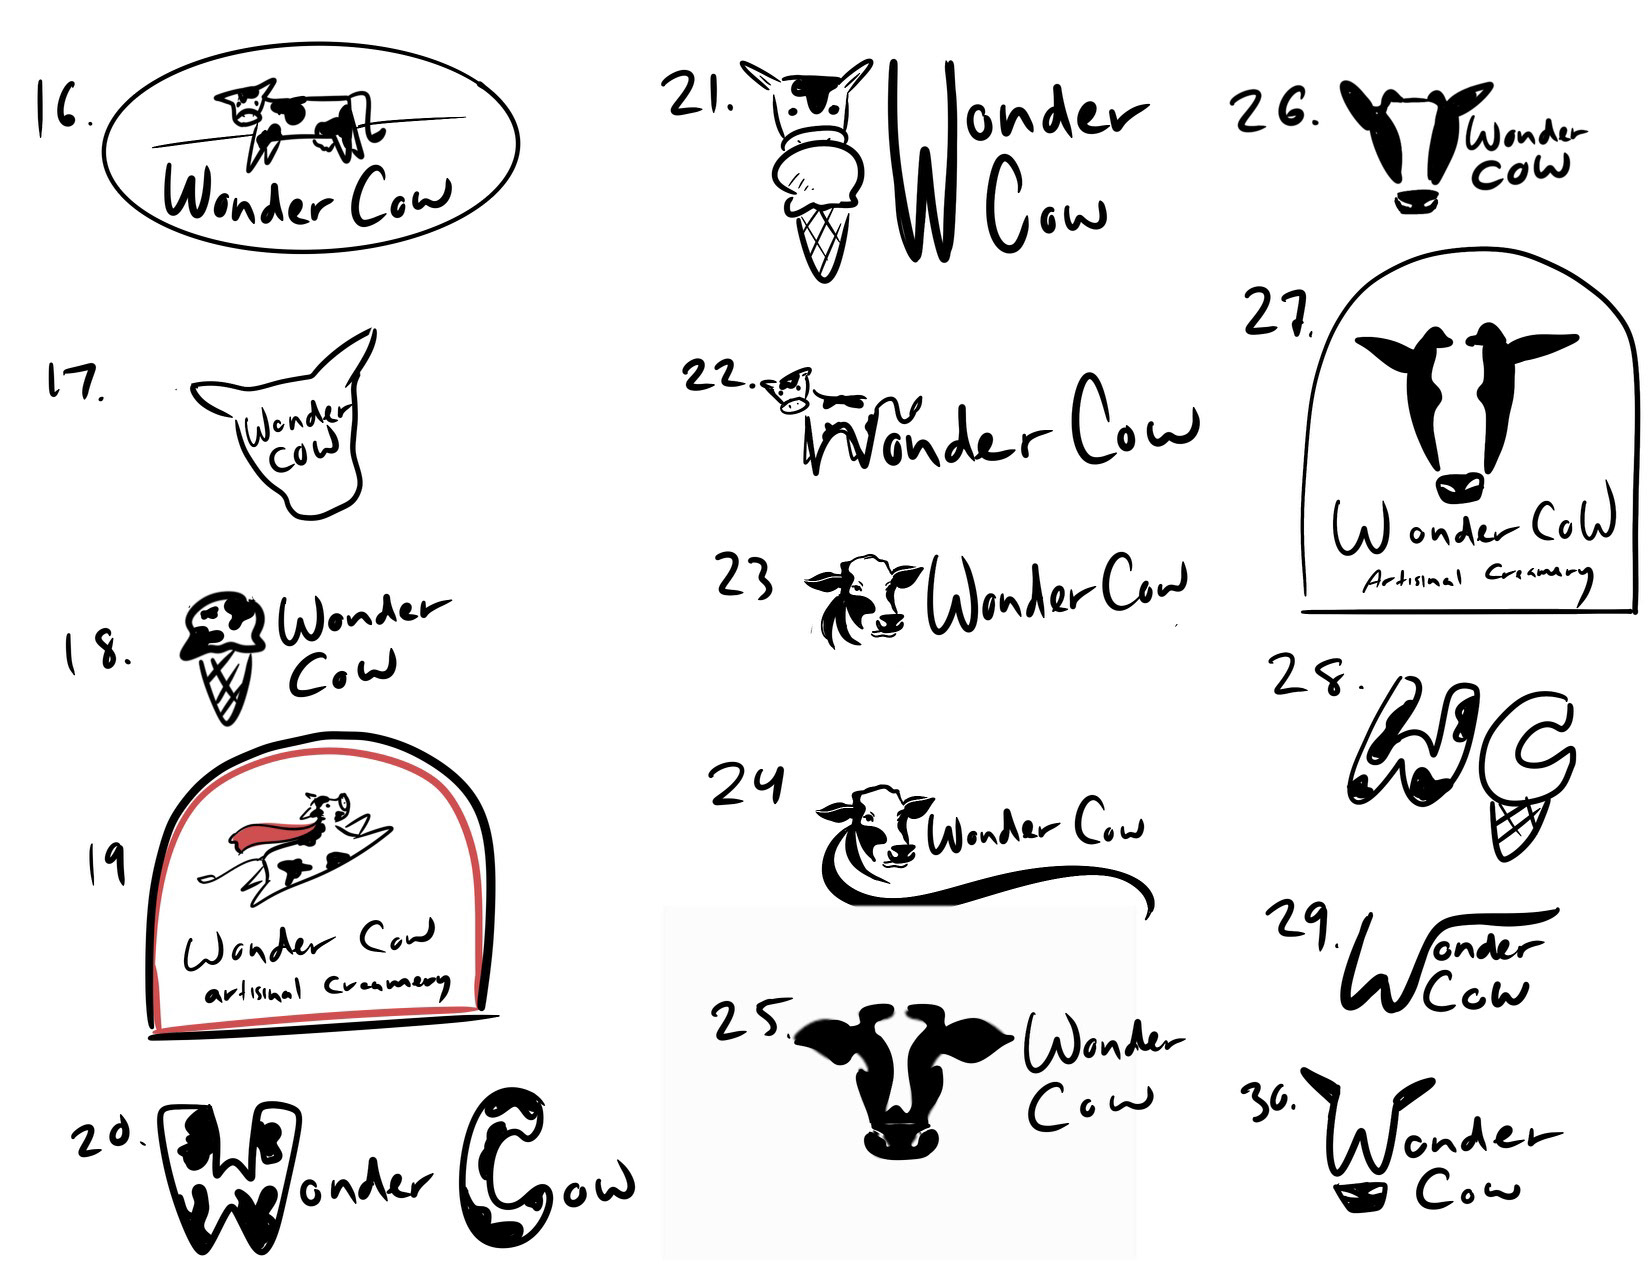 16.
Wonder Cow
17.
Wonder
Cow
18.
Wonder
Cow
19
Wonder Cow
artisinal Creamery
20.
Wonder Cow
21.
Wonder
Cow
22.
Wonder Cow
23
Wonder Cow
24
Wonder Cow
25.
Wonder
Cow
26.
Wonder
Cow
27.
Wonder CoW
Artisinal Creamery
28.
WC
29.
Wonder
Cow
30.
Wonder
Cow